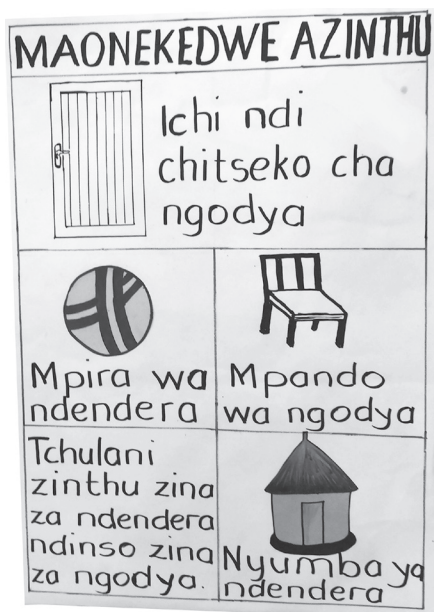 MAONEKEDWE AZINTHU
Ichi ndi
chitseko cha
ngodya
Mpira wa
ndendera
Mpando
wa ngodya
Tchulani
zinthu zina
za ndendera
ndinso zina
za ngodya.
Nyumba ya
ndendera